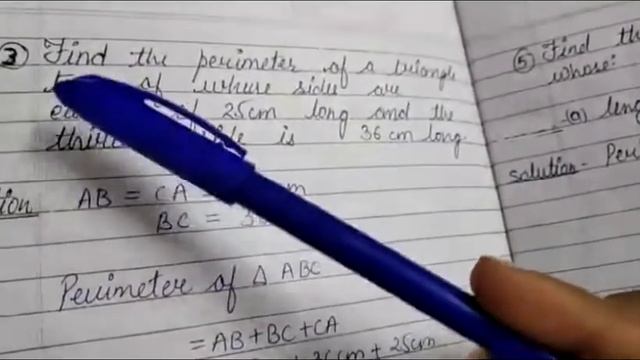 ③ Find the perimeter of a triangle
of whose sides are
25cm long and the
third is 36 cm long.
AB = CA = m
BC =
Perimeter of Δ ABC
= AB+BC+CA
36cm + 25cm
⑤ Find the
whose:
(a) leng
solution - Peri